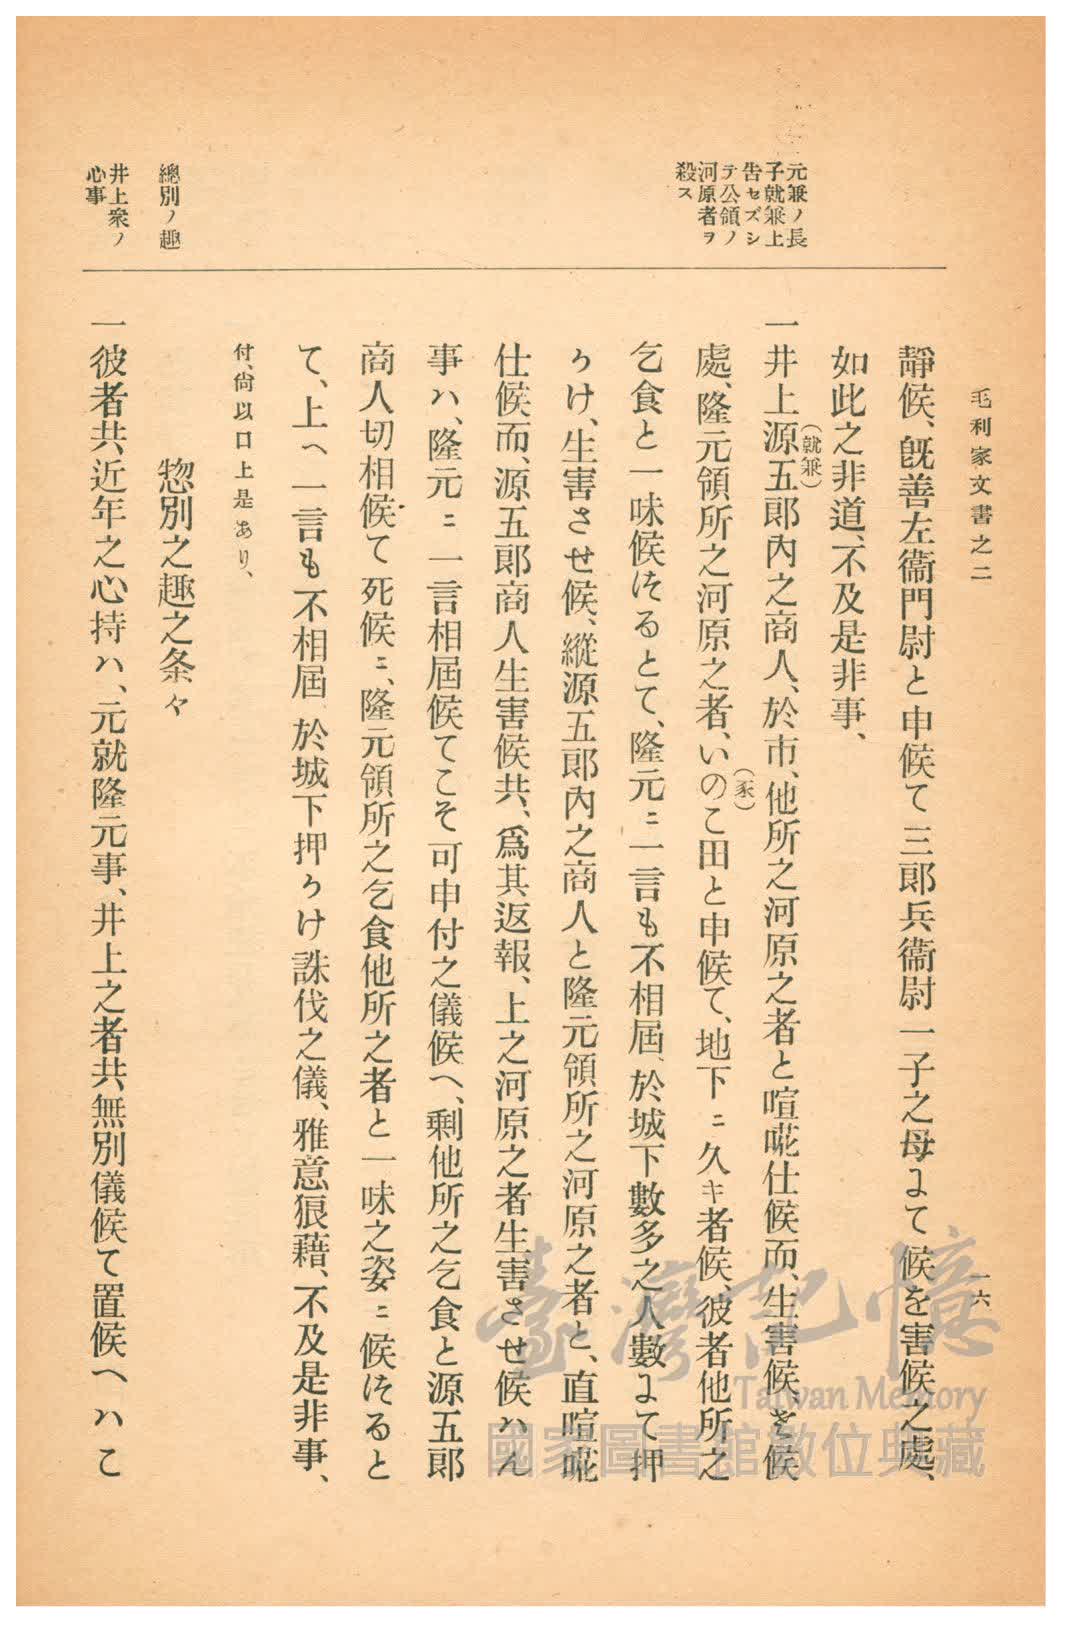 毛利家文書之二
一六
靜候、旣善左衞門尉と申候て三郞兵衞尉一子之母ニて候を害候之處、
如此之非道、不及是非事、
元兼ノ長
子就兼上
告セズシ
テ公領ノ
河原者ヲ
殺ス
一井上源五郞內之商人、於市、他所之河原之者と喧嘩仕候而、生害候、き候
(就兼)
處、隆元領所之河原之者、いのこ田と申候て、地下ニ久キ者候、彼者他所之
(豕)
乞食と一味候つるとて、隆元ニ一言も不相屆、於城下數多之人數ニて押
かけ、生害させ候、縱源五郞內之商人と隆元領所之河原之者と、直喧嘩
仕候而、源五郞商人生害候共、爲其返報、上之河原之者生害させ候ハん
事ハ、隆元ニ一言相屆候てこそ可申付之儀候へ、剩他所之乞食と源五郞
商人切相候て死候ニ、隆元領所之乞食他所之者と一味之姿ニ候つると
て、上へ一言も不相屆、於城下押かけ誅伐之儀、雅意狼藉、不及是非事、
付、尙以口上是あり、
總別ノ趣
惣別之趣之条々
井上衆ノ
心事
一彼者共、近年之心持ハ、元就隆元事、井上之者共無別儀候て置候へハこ
臺灣記憶
Taiwan Memory
國家圖書館數位典藏